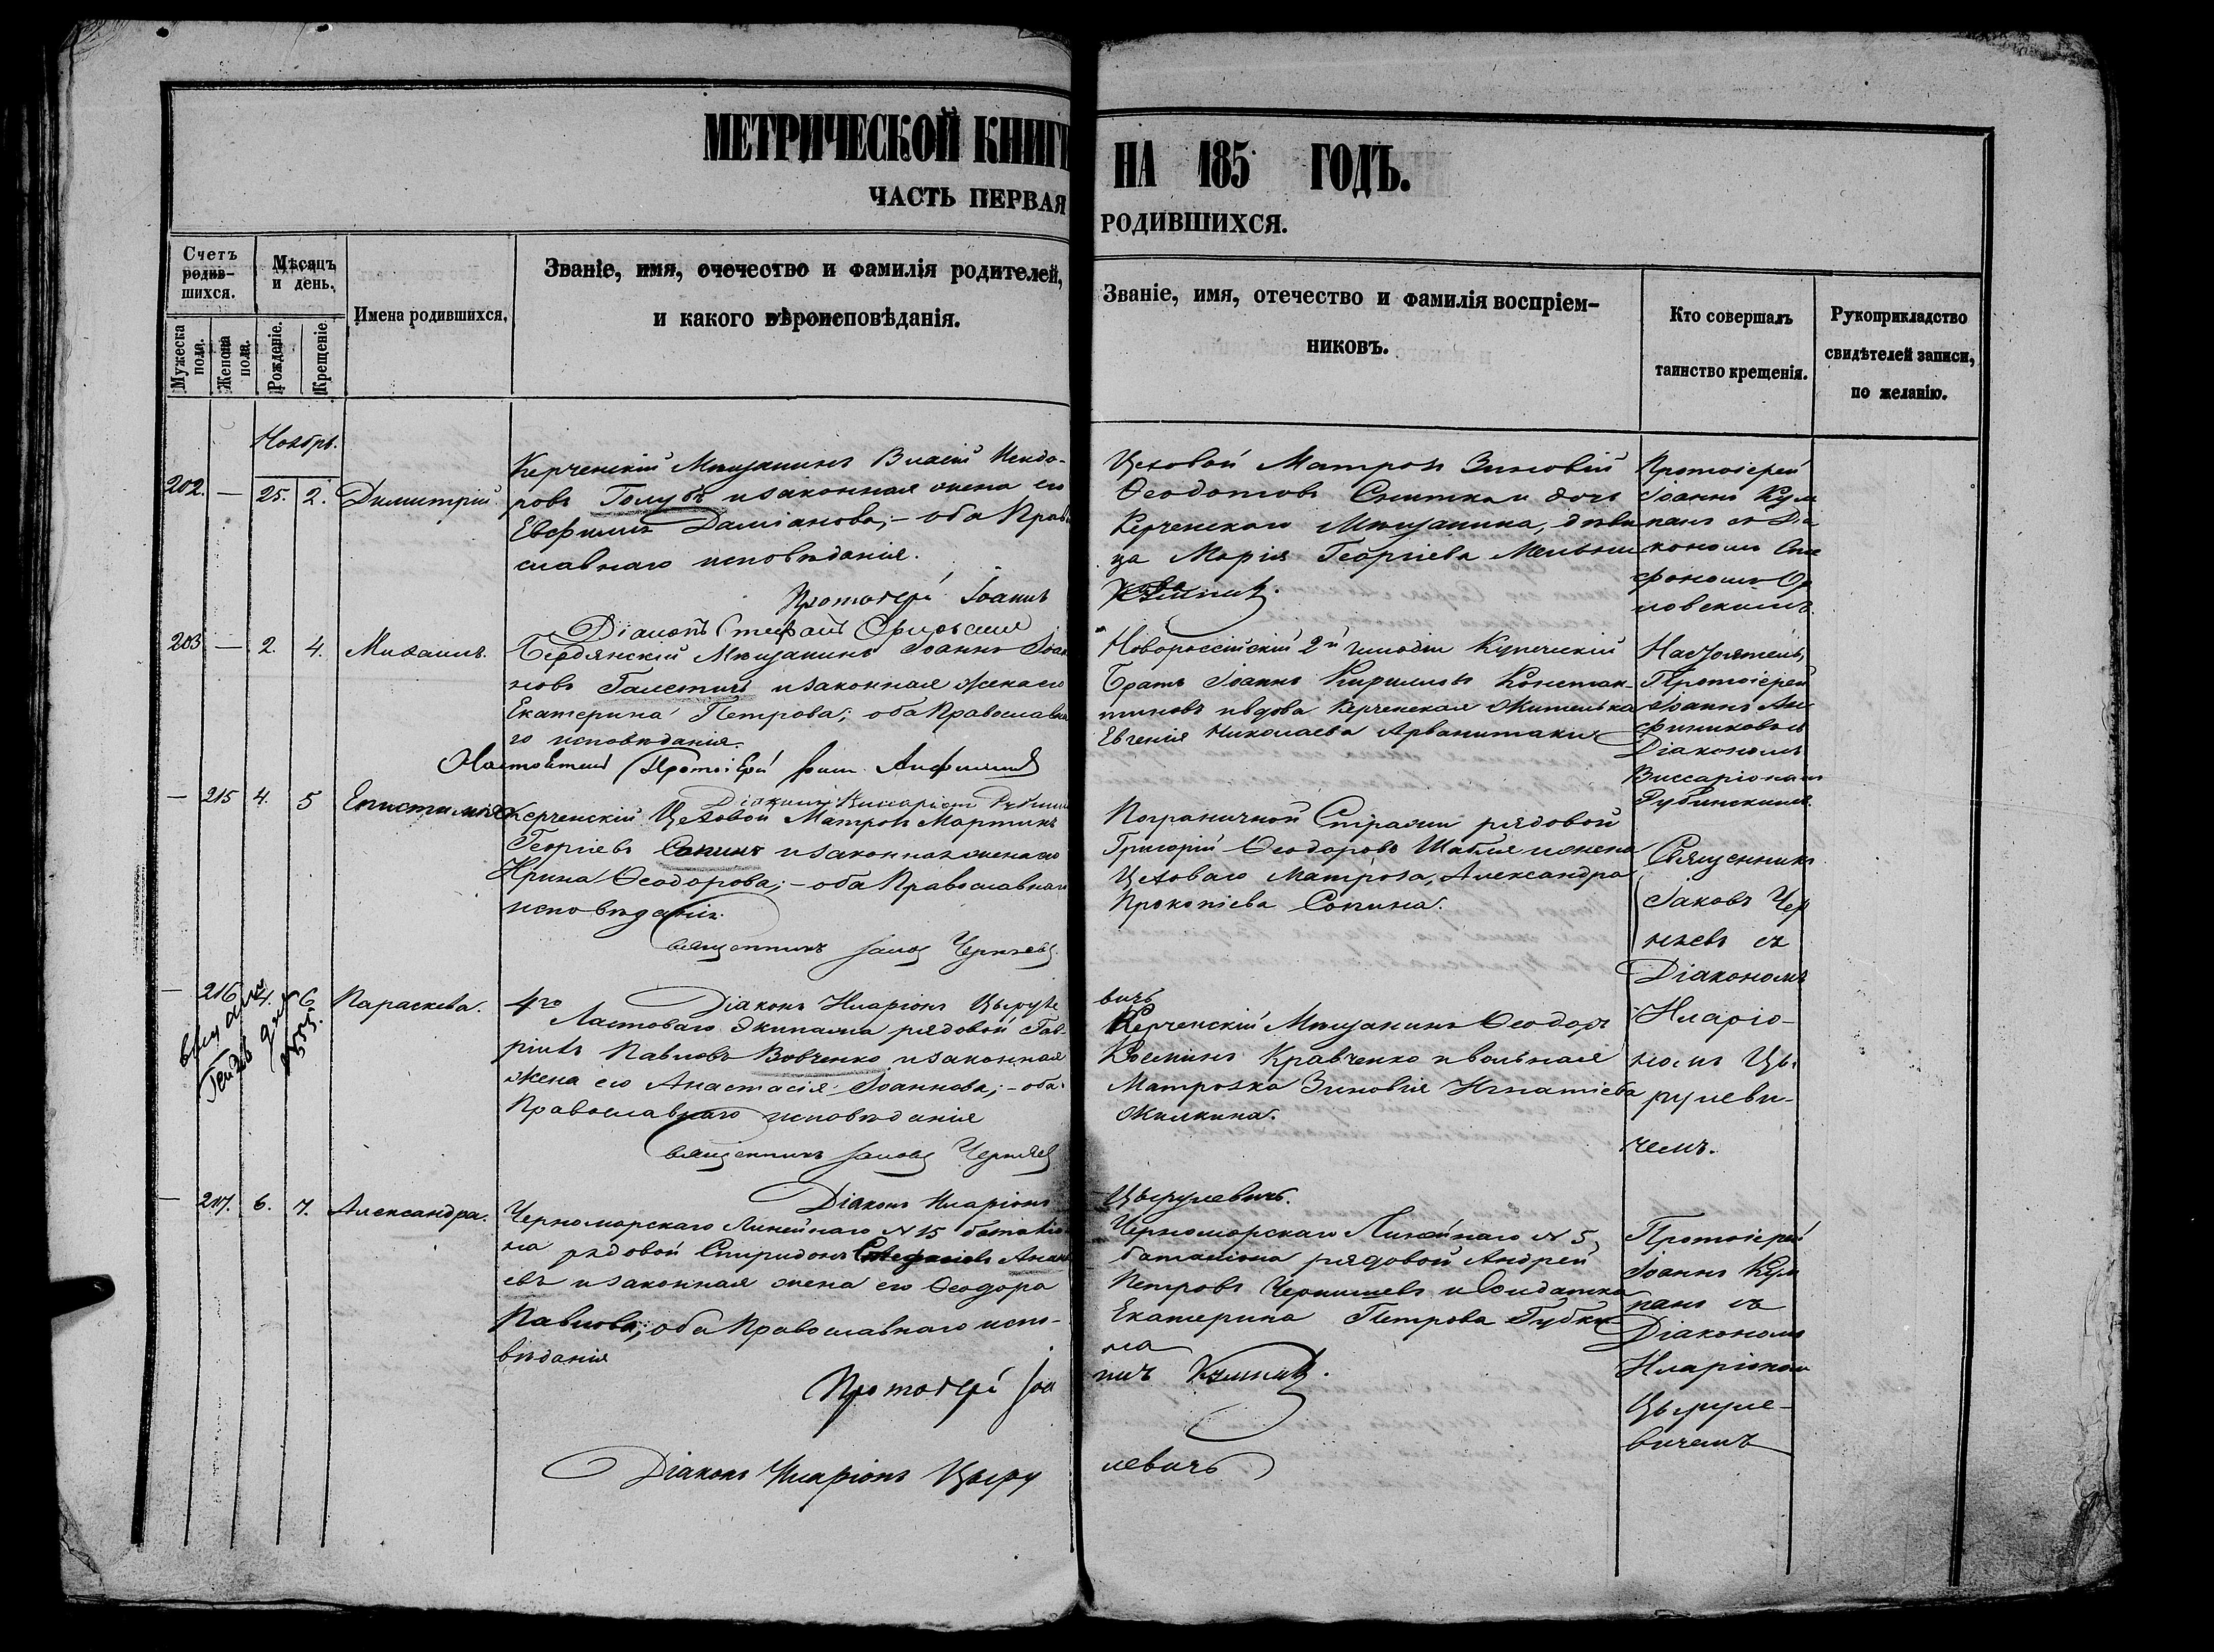 МЕТРИЧЕСКОЙ КНИГИ НА 185 ГОДЪ.
ЧАСТЬ ПЕРВАЯ РОДИВШИХСЯ.
Счетъ родив-шихся.
Мужеска пола.
Женска пола.
Мѣсяцъ и день.
Рожденіе.
Крещеніе.
Имена родившихся.
Званіе, имя, очечество и фамилія родителей,
и какого вѣроисповѣданія.
Званіе, имя, отечество и фамилія воспріем-
никовъ.
Кто совершалъ
таинство крещенія.
Рукоприкладство
свидѣтелей записи,
по желанію.
Ноябрь.
202. — 25. 2. Димитрій
Керченскій Мѣщанинъ Власій Исидо-
ровъ Голубъ и законная жена его
Евфимія Даміанова; – оба Право
славнаго исповѣданія.
Протоіерей Іоаннъ
Діаконъ Стефанъ
Цеховой Матросъ Зиновій
Ѳеодотовъ Снитко и дочь
Керченскаго Мѣщанина, дѣви
ца Марія Георгіева
Протоіерей
Іоаннъ
съ Діа
кономъ
203. — 2. 4. Михаилъ.
Бердянскій Мѣщанинъ Іоаннъ Іоан
новъ и законная жена его
Екатерина Петрова; оба Православна
го исповѣданія.
Настоятель Протоіерей
Діаконъ Виссаріонъ
Новороссійскій 2й гильдіи Купеческій
Братъ Іоаннъ Кирилловъ Констан-
тиновъ и вдова Керченская Жителька
Евгенія Николаева Арванитаки
Настоятель,
Протоіерей
Іоаннъ
съ
Діакономъ
Виссаріономъ
Рубинскимъ.
— 215 4. 5 Епистимія
Керченскій Цеховой Матросъ Мартинъ
Георгіевъ Сопинъ и законная жена его
Ирина Ѳеодорова; – оба Православнаго
исповѣданія.
Священникъ Іаковъ Черняевъ
Діаконъ Иларіонъ Цыруле
вичъ
Пограничной Стражи рядовой
Григорій Ѳеодоровъ Шабля и жена
Цеховаго Матроса, Александра
Прокопіева Сопина.
Священникъ
Іаковъ Чер
няевъ съ
Діакономъ
Иларіо-
номъ Цы
рулеви-
чемъ.
— 216 4. 6. Параскева.
4го Ластоваго Экипажа рядовой Гав-
ріилъ Павловъ Вовченко и законная
жена его Анастасія Іоаннова; – оба
Православнаго исповѣданія
Священникъ Іаковъ Черняевъ
Діаконъ Иларіонъ
Цырулевичъ.
Керченскій Мѣщанинъ Ѳеодоръ
Кравченко и вольная
Матроска Зиновія Игнатіева
Жилкина.
— 217. 6. 7. Александра.
Черноморскаго Линейнаго № 15 баталіо
на рядовой Спиридонъ Стефановъ
евъ и законная жена его Ѳеодора
Павлова; оба Православнаго испо-
вѣданія
Протоіерей Іоа
ннъ
Діаконъ Иларіонъ Цыру
левичъ
Черноморскаго Линейнаго № 5
баталіона рядовой Андрей
Петровъ Чернышевъ и Солдатка
Екатерина Петрова Губки
на
Протоіерей
Іоаннъ
съ
Діакономъ
Иларіономъ
Цыруле-
вичемъ